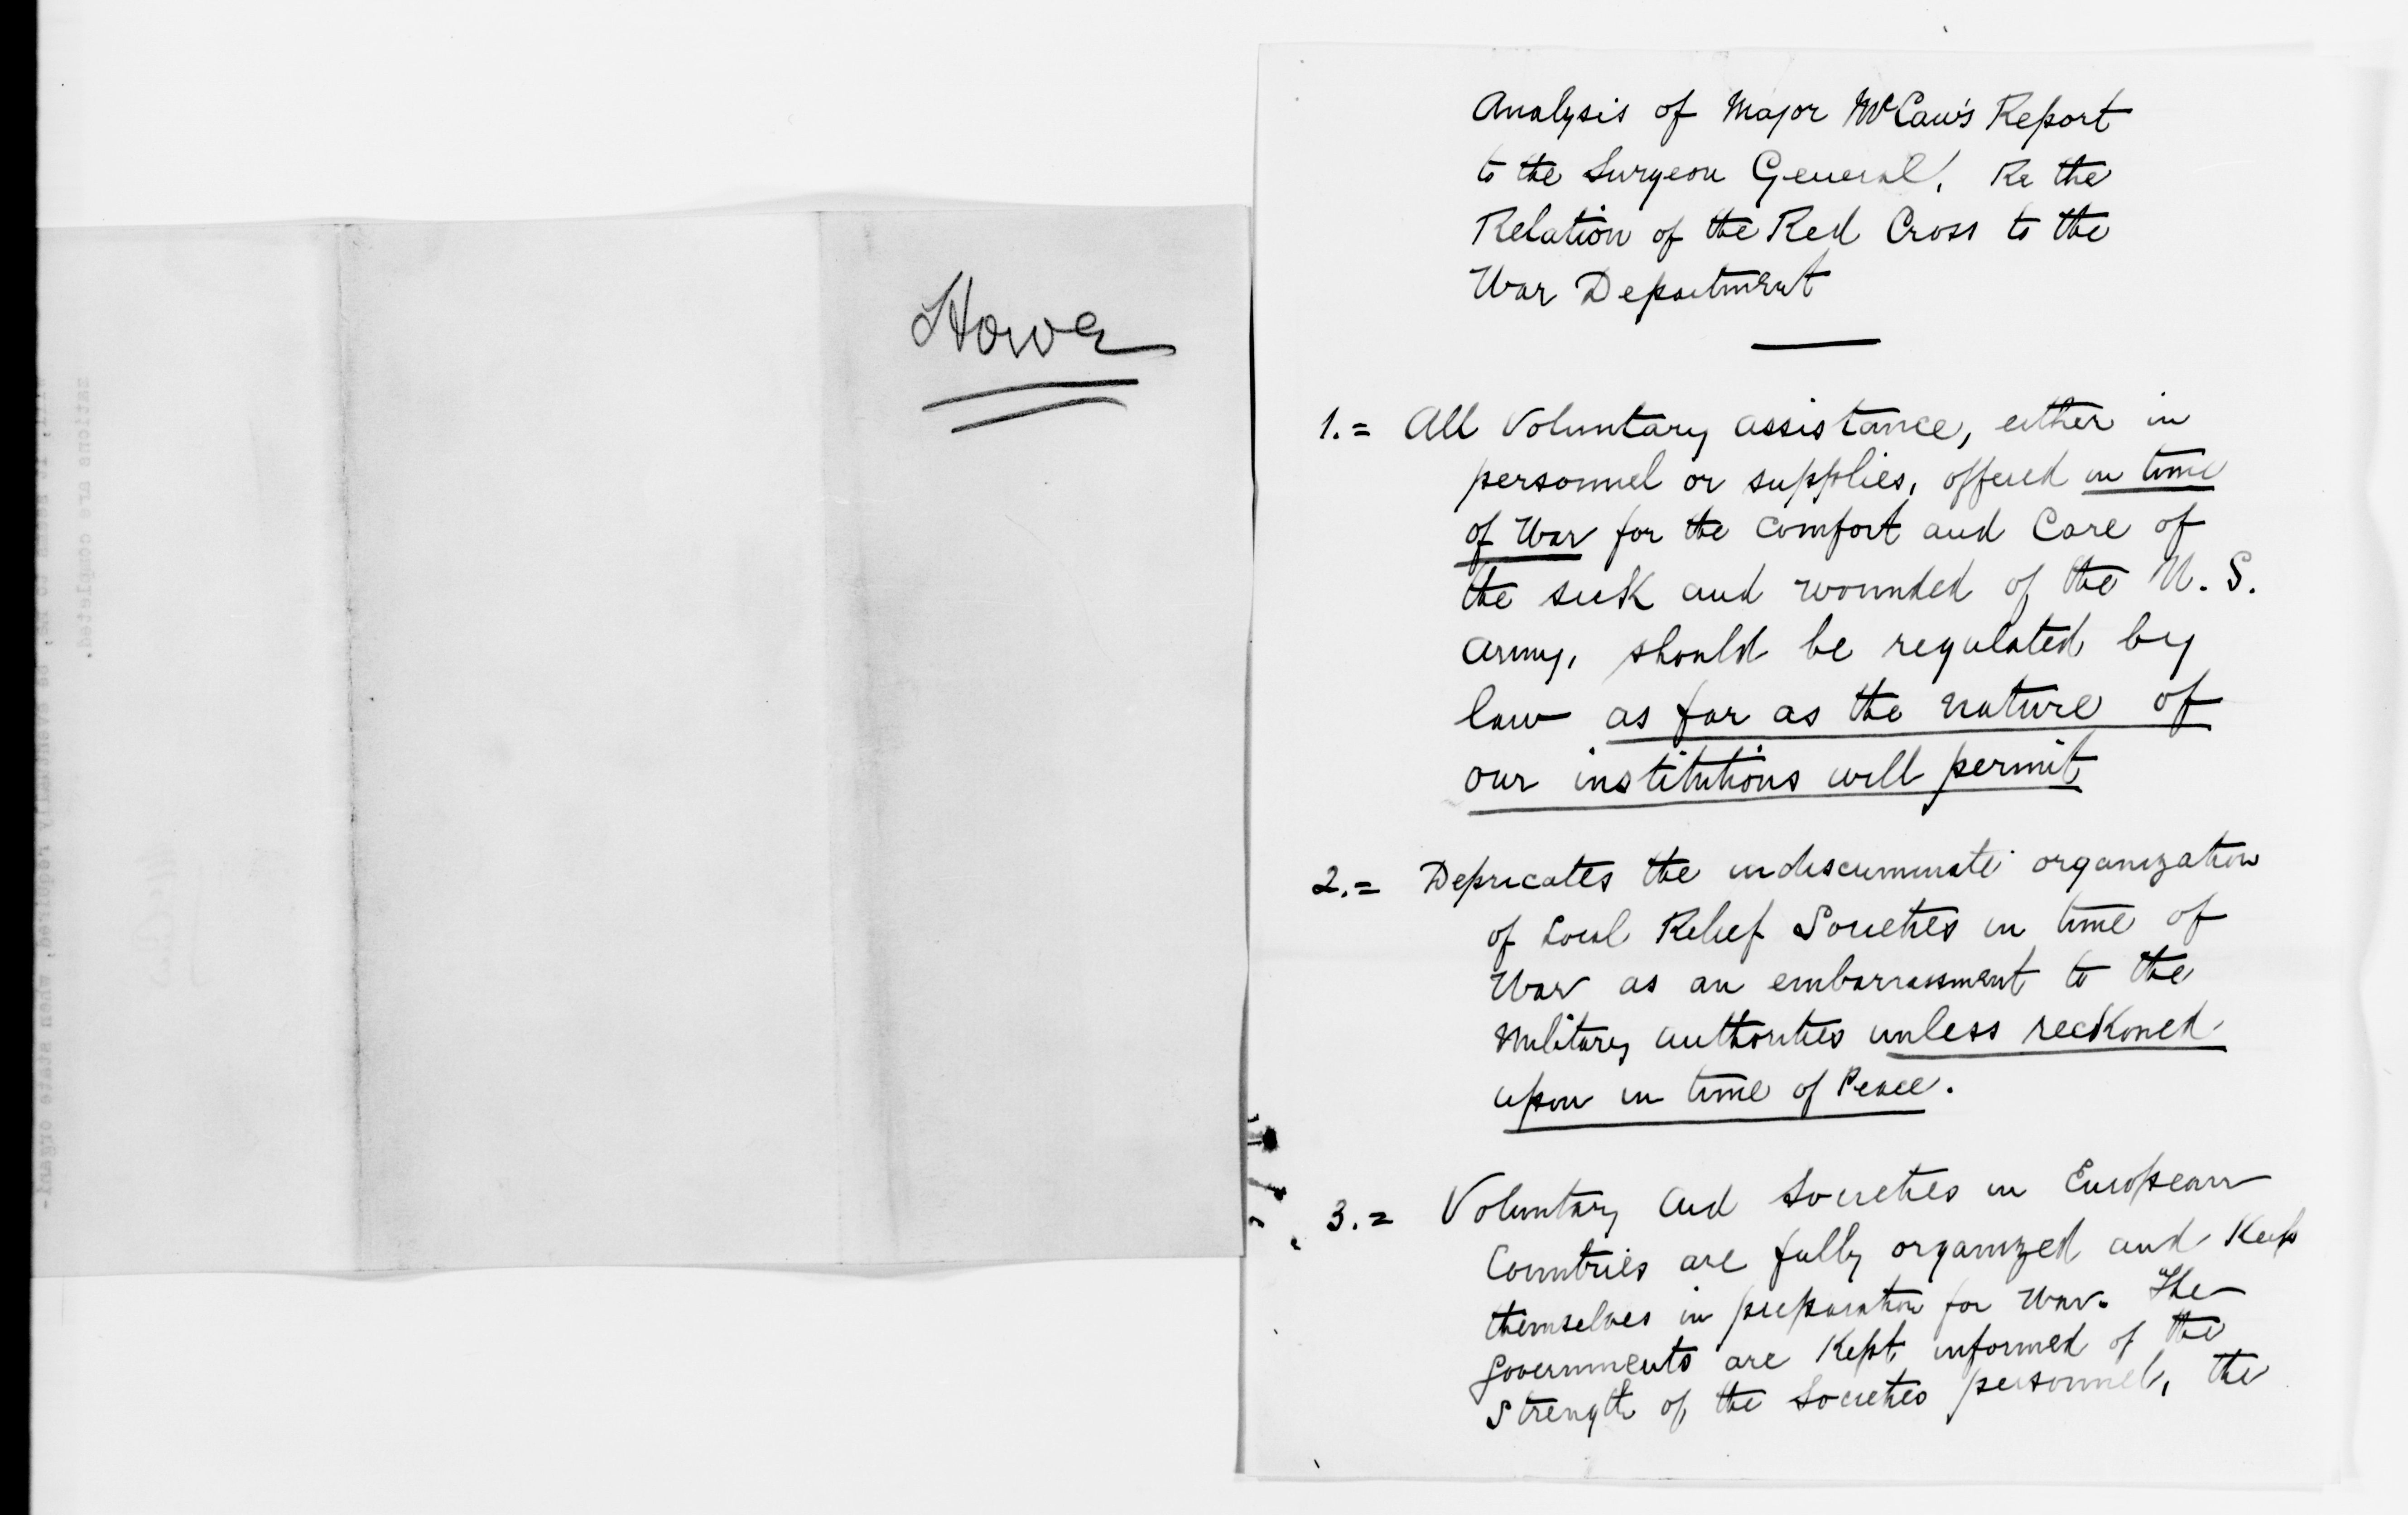 Howe
Analysis of Major McCaw's Report
to the Surgeon General, Re the
Relation of the Red Cross to the
War Department
1.= All Voluntary assistance, either in
personnel or supplies, offered in time
of War for the comfort and Care of
the sick and wounded of the U. S.
Army, should be regulated by
law as far as the nature of
our institutions will permit
2.= Depricates the indiscriminate organization
of Local Relief Societies in time of
War as an embarrassment to the
Military authorities unless reckoned
upon in time of Peace.
3.= Voluntary Aid Societies in European
Countries are fully organized and Keep
themselves in preparation for War. The
Governments are Kept informed of the
Strength of the Societies personnel, the
zations are completed.
eventually required, when state organi-